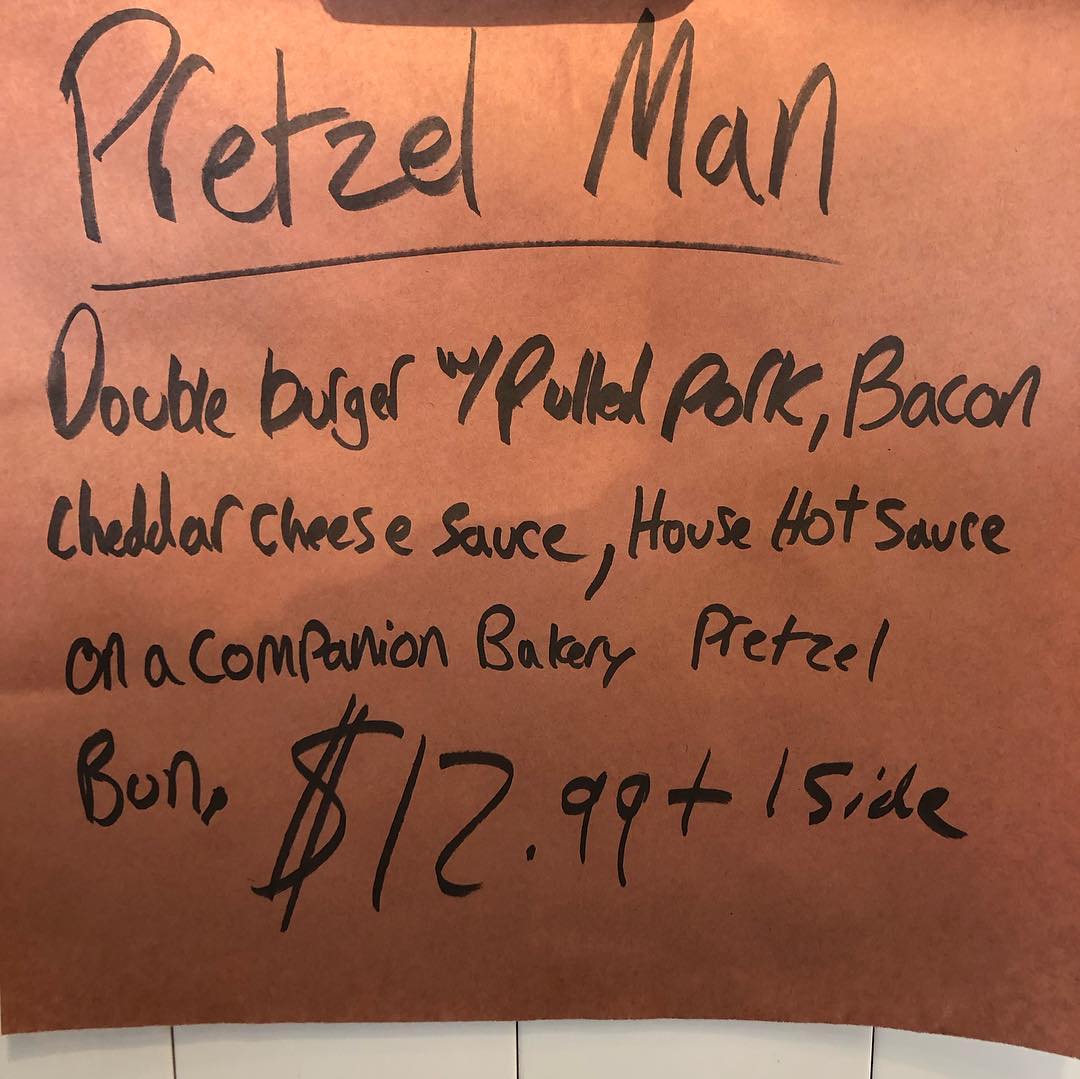 Pretzel Man
Double burger w/ Pulled Pork, Bacon
Cheddar Cheese Sauce, House Hot Sauce
on a Companion Bakery Pretzel
Bun, $12.99 + 1 Side